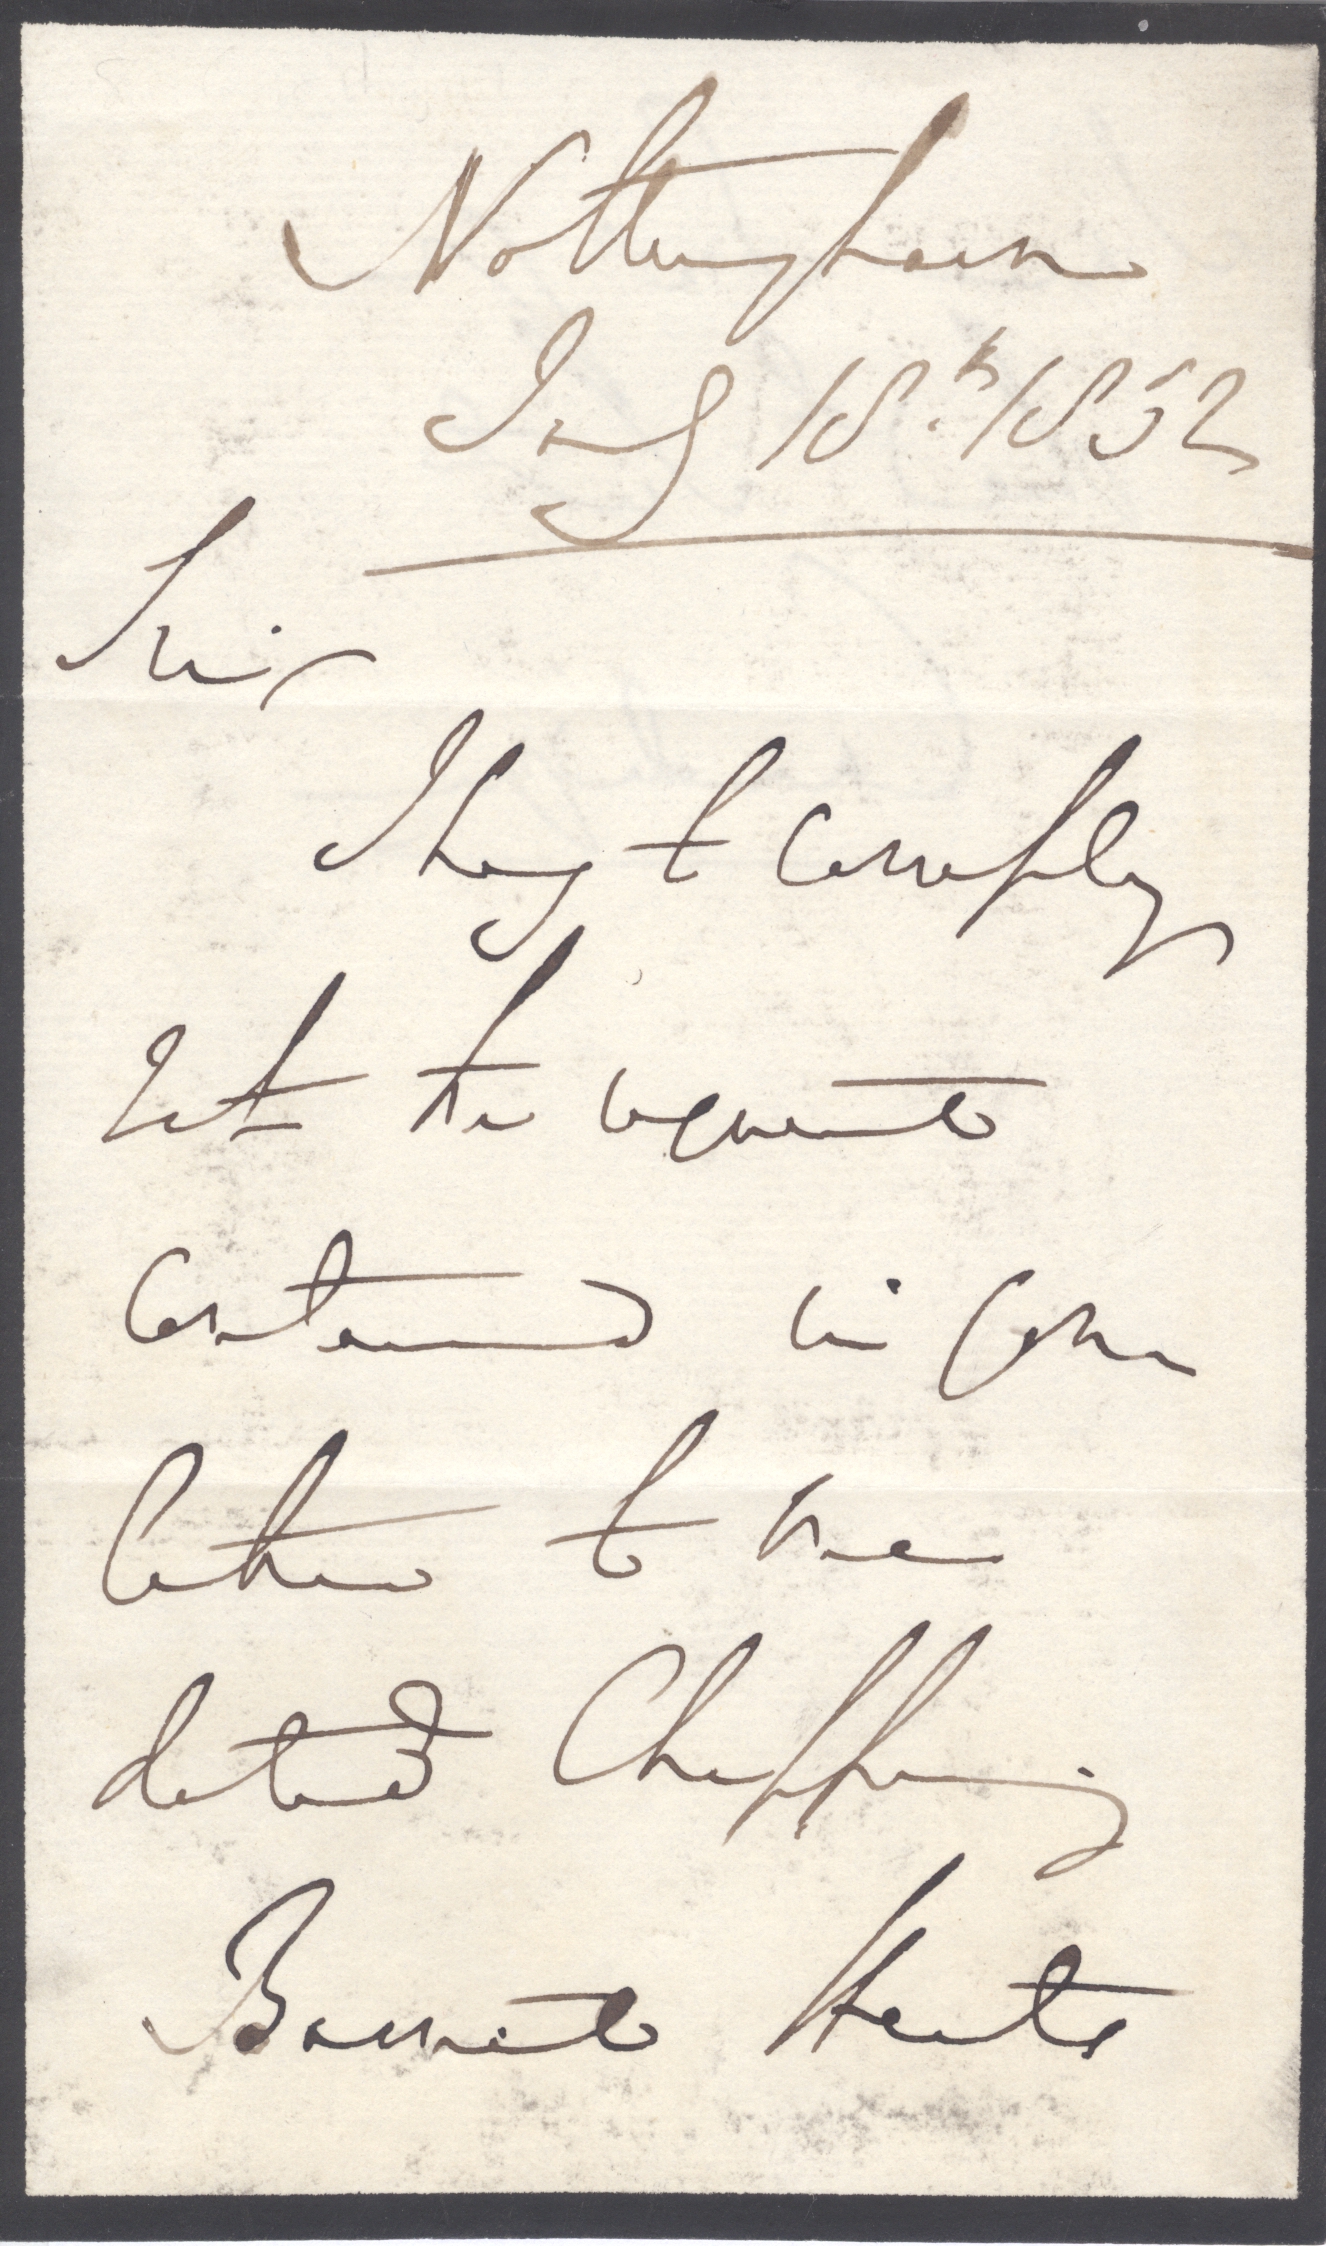 Nottingham
Jany 18th. 1852
Sir
I beg to comply
with the request
contained in your
letter to me
dated Chipping
Barnet Herts